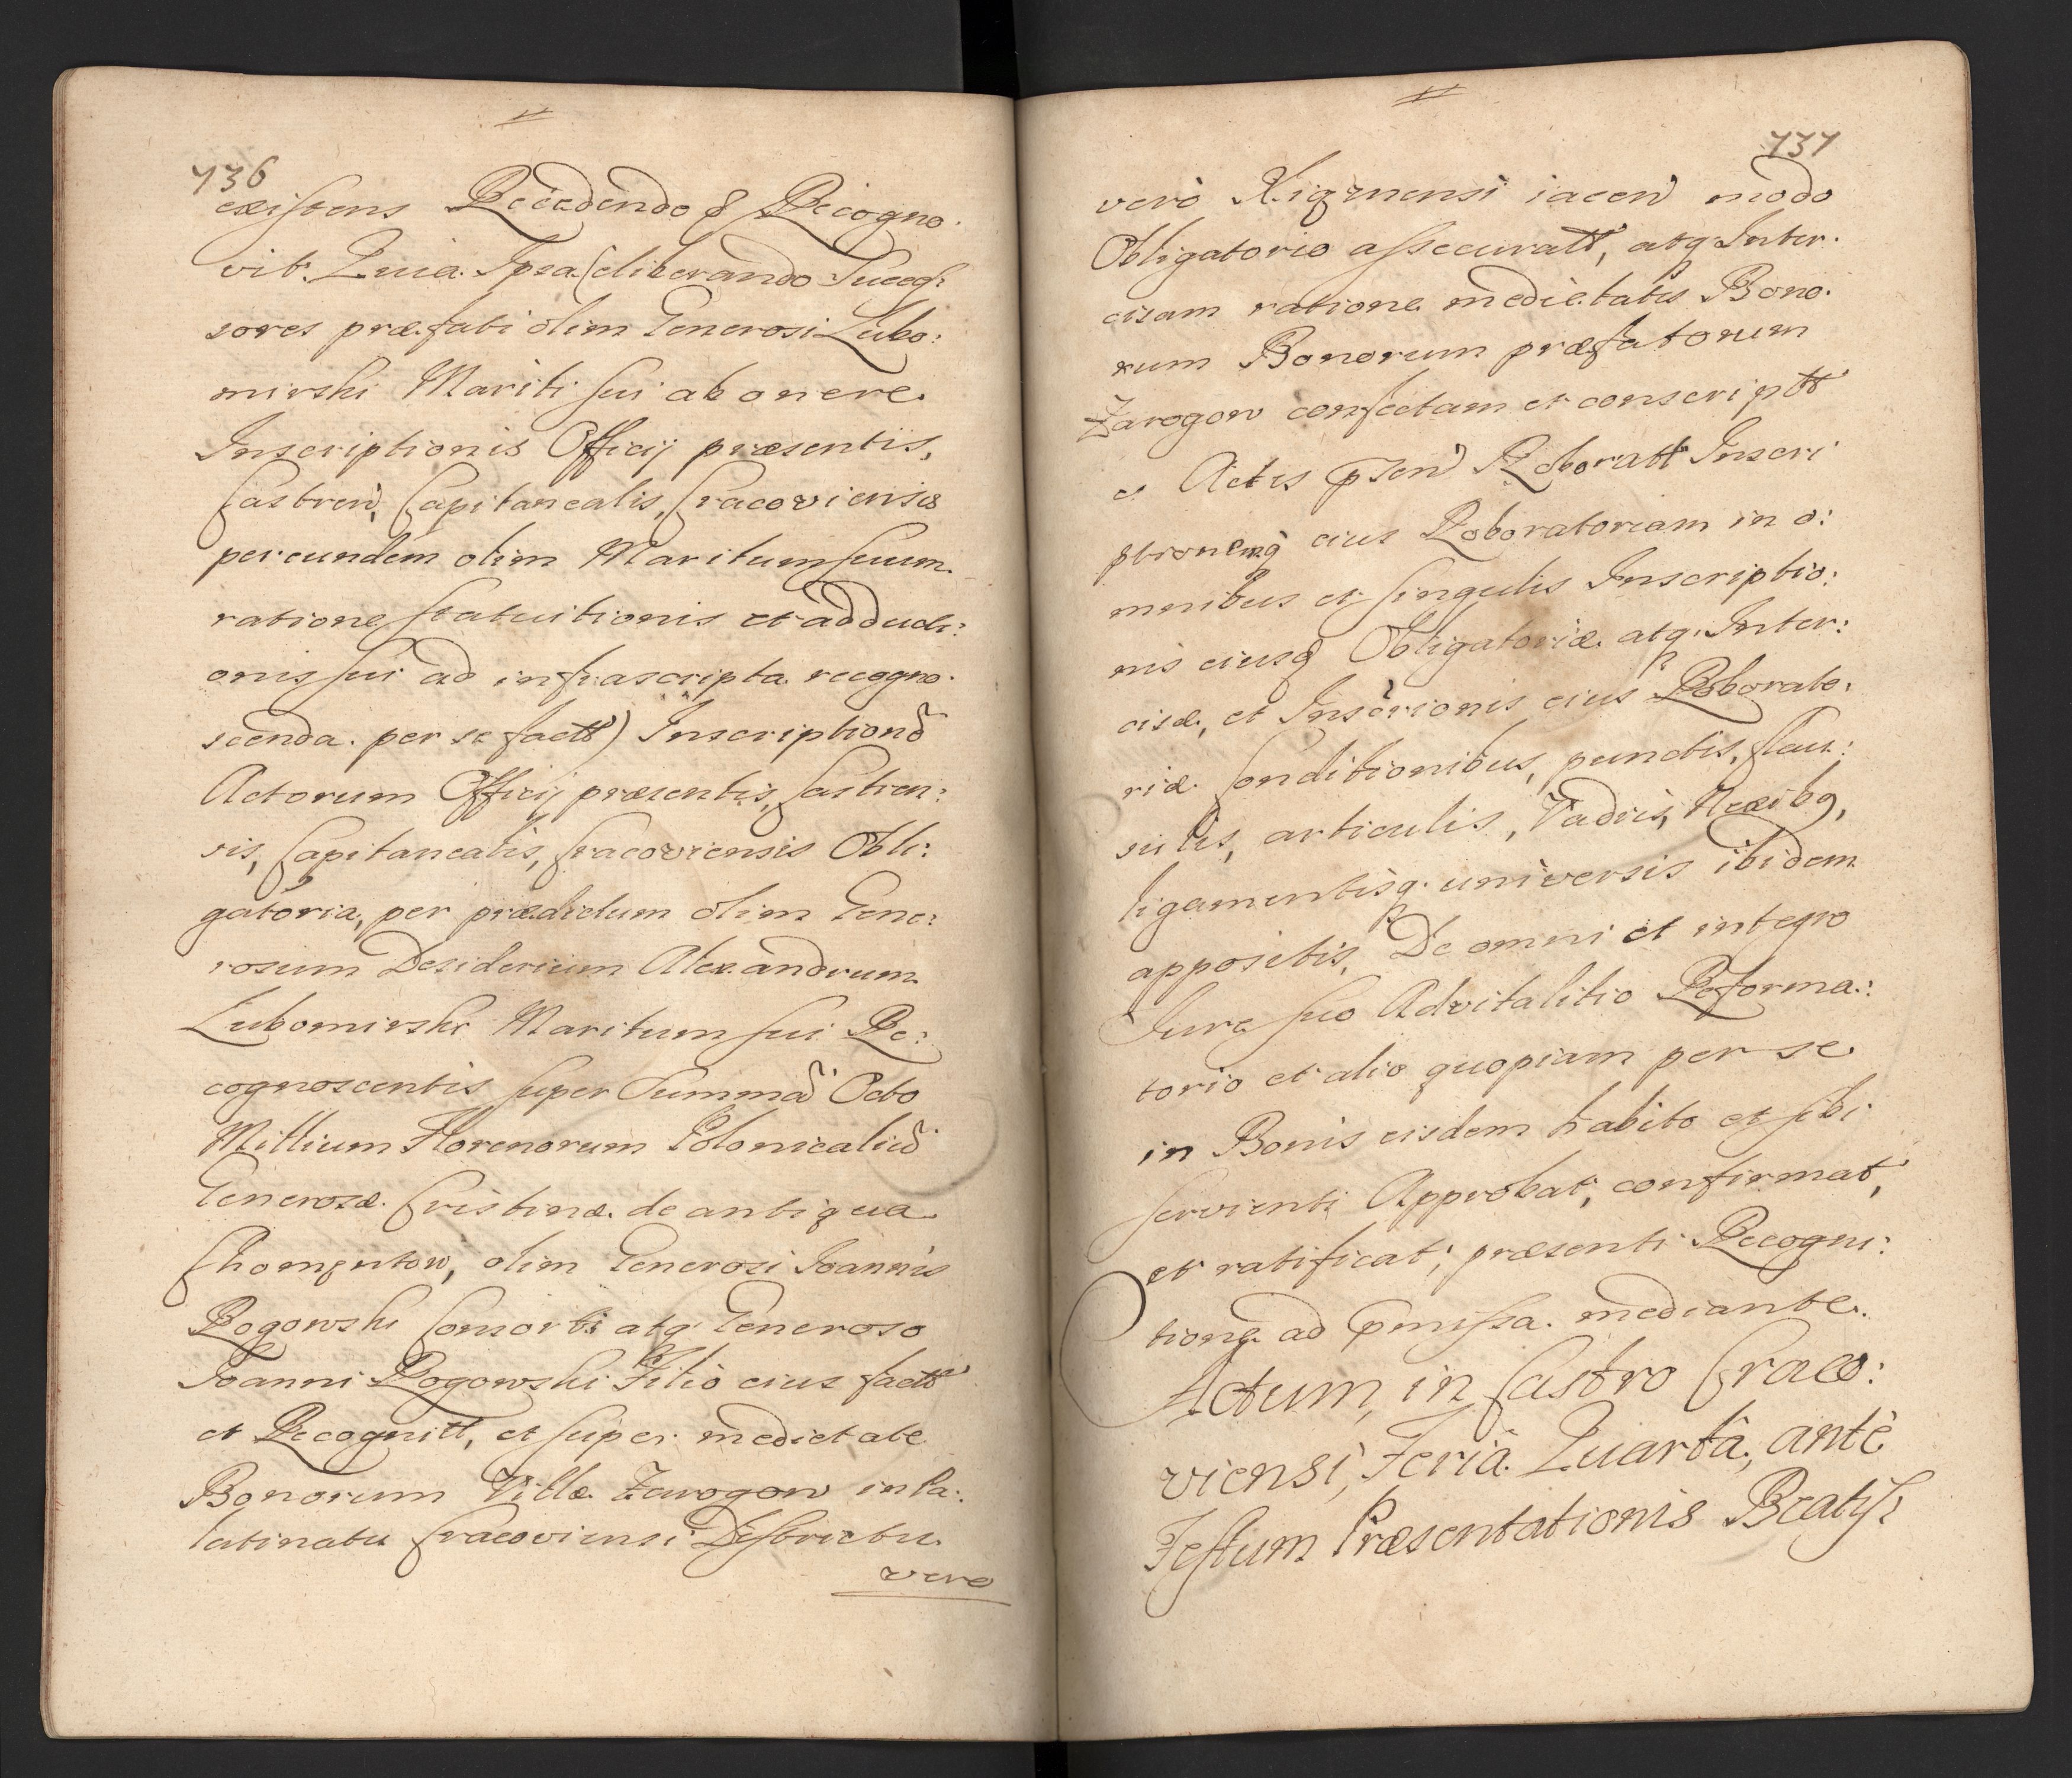 736
existens Recedendo & Recogno.
vit. Quia Ipsa (liberando Succes:
sores præfati olim Generosi Lubo:
mirski Mariti sui ab onere
Inscriptionis Officij præsentis,
Castren, Capitanealis, Cracoviensis
per eundem olim Maritum suum
ratione statuitionis et adducti:
onis sui ad infrascripta recogno.
scenda per se factt) Inscriptiond
Actorum Officij præsentis, Castren:
sis, Capitanealis, Cracoviensis Obli:
gatoria, per prædictum olim Gene:
rosum Desiderium Alexandrum
Lubomirski Maritum sui Re:
cognoscentis super Summa Octo
Millium Florenorum Polonicaliu
Generosæ Cristinæ de antiqua
olim Generosi Ioannis
Rogowski Consorti atq Generoso
Ioanni Rogowski Filio eius factt
et Recognitt, et super medietate
Bonorum Villæ Zarogow in Pa:
latinatu Cracoviensi Districtu
vero
737
vero Xiązmensi iacen modo
Obligatorio assecuratt, atq Inter.
cisam ratione medietatis Bono.
rum Bonorum præfatorum
Zarogow confectam et conscriptt
et Actis pñsen Roboratt Inscri
ptionemq eius Roboratoriam in o:
mnibus et singulis Inscriptio:
nis eiusq Obligatoriæ atq Inter:
cisæ, et Inscrionis eius Roborato:
riæ Conditionibus, punctis, clau:
sulis, articulis, Vadiis, Nexibq,
ligamentisq universis ibidem
appositis, De omni et integro
Iure suo Advitalitio Reforma:
torio et alio quopiam per se
in Bonis eisdem habito et sibi
servienti Approbat, confirmat,
et ratificat, præsenti Recogni:
tione ad pmissa mediante.
Actum, in Castro Craco:
viensi, Feria Quarta, ante
Festum Præsentationis Beatiss: